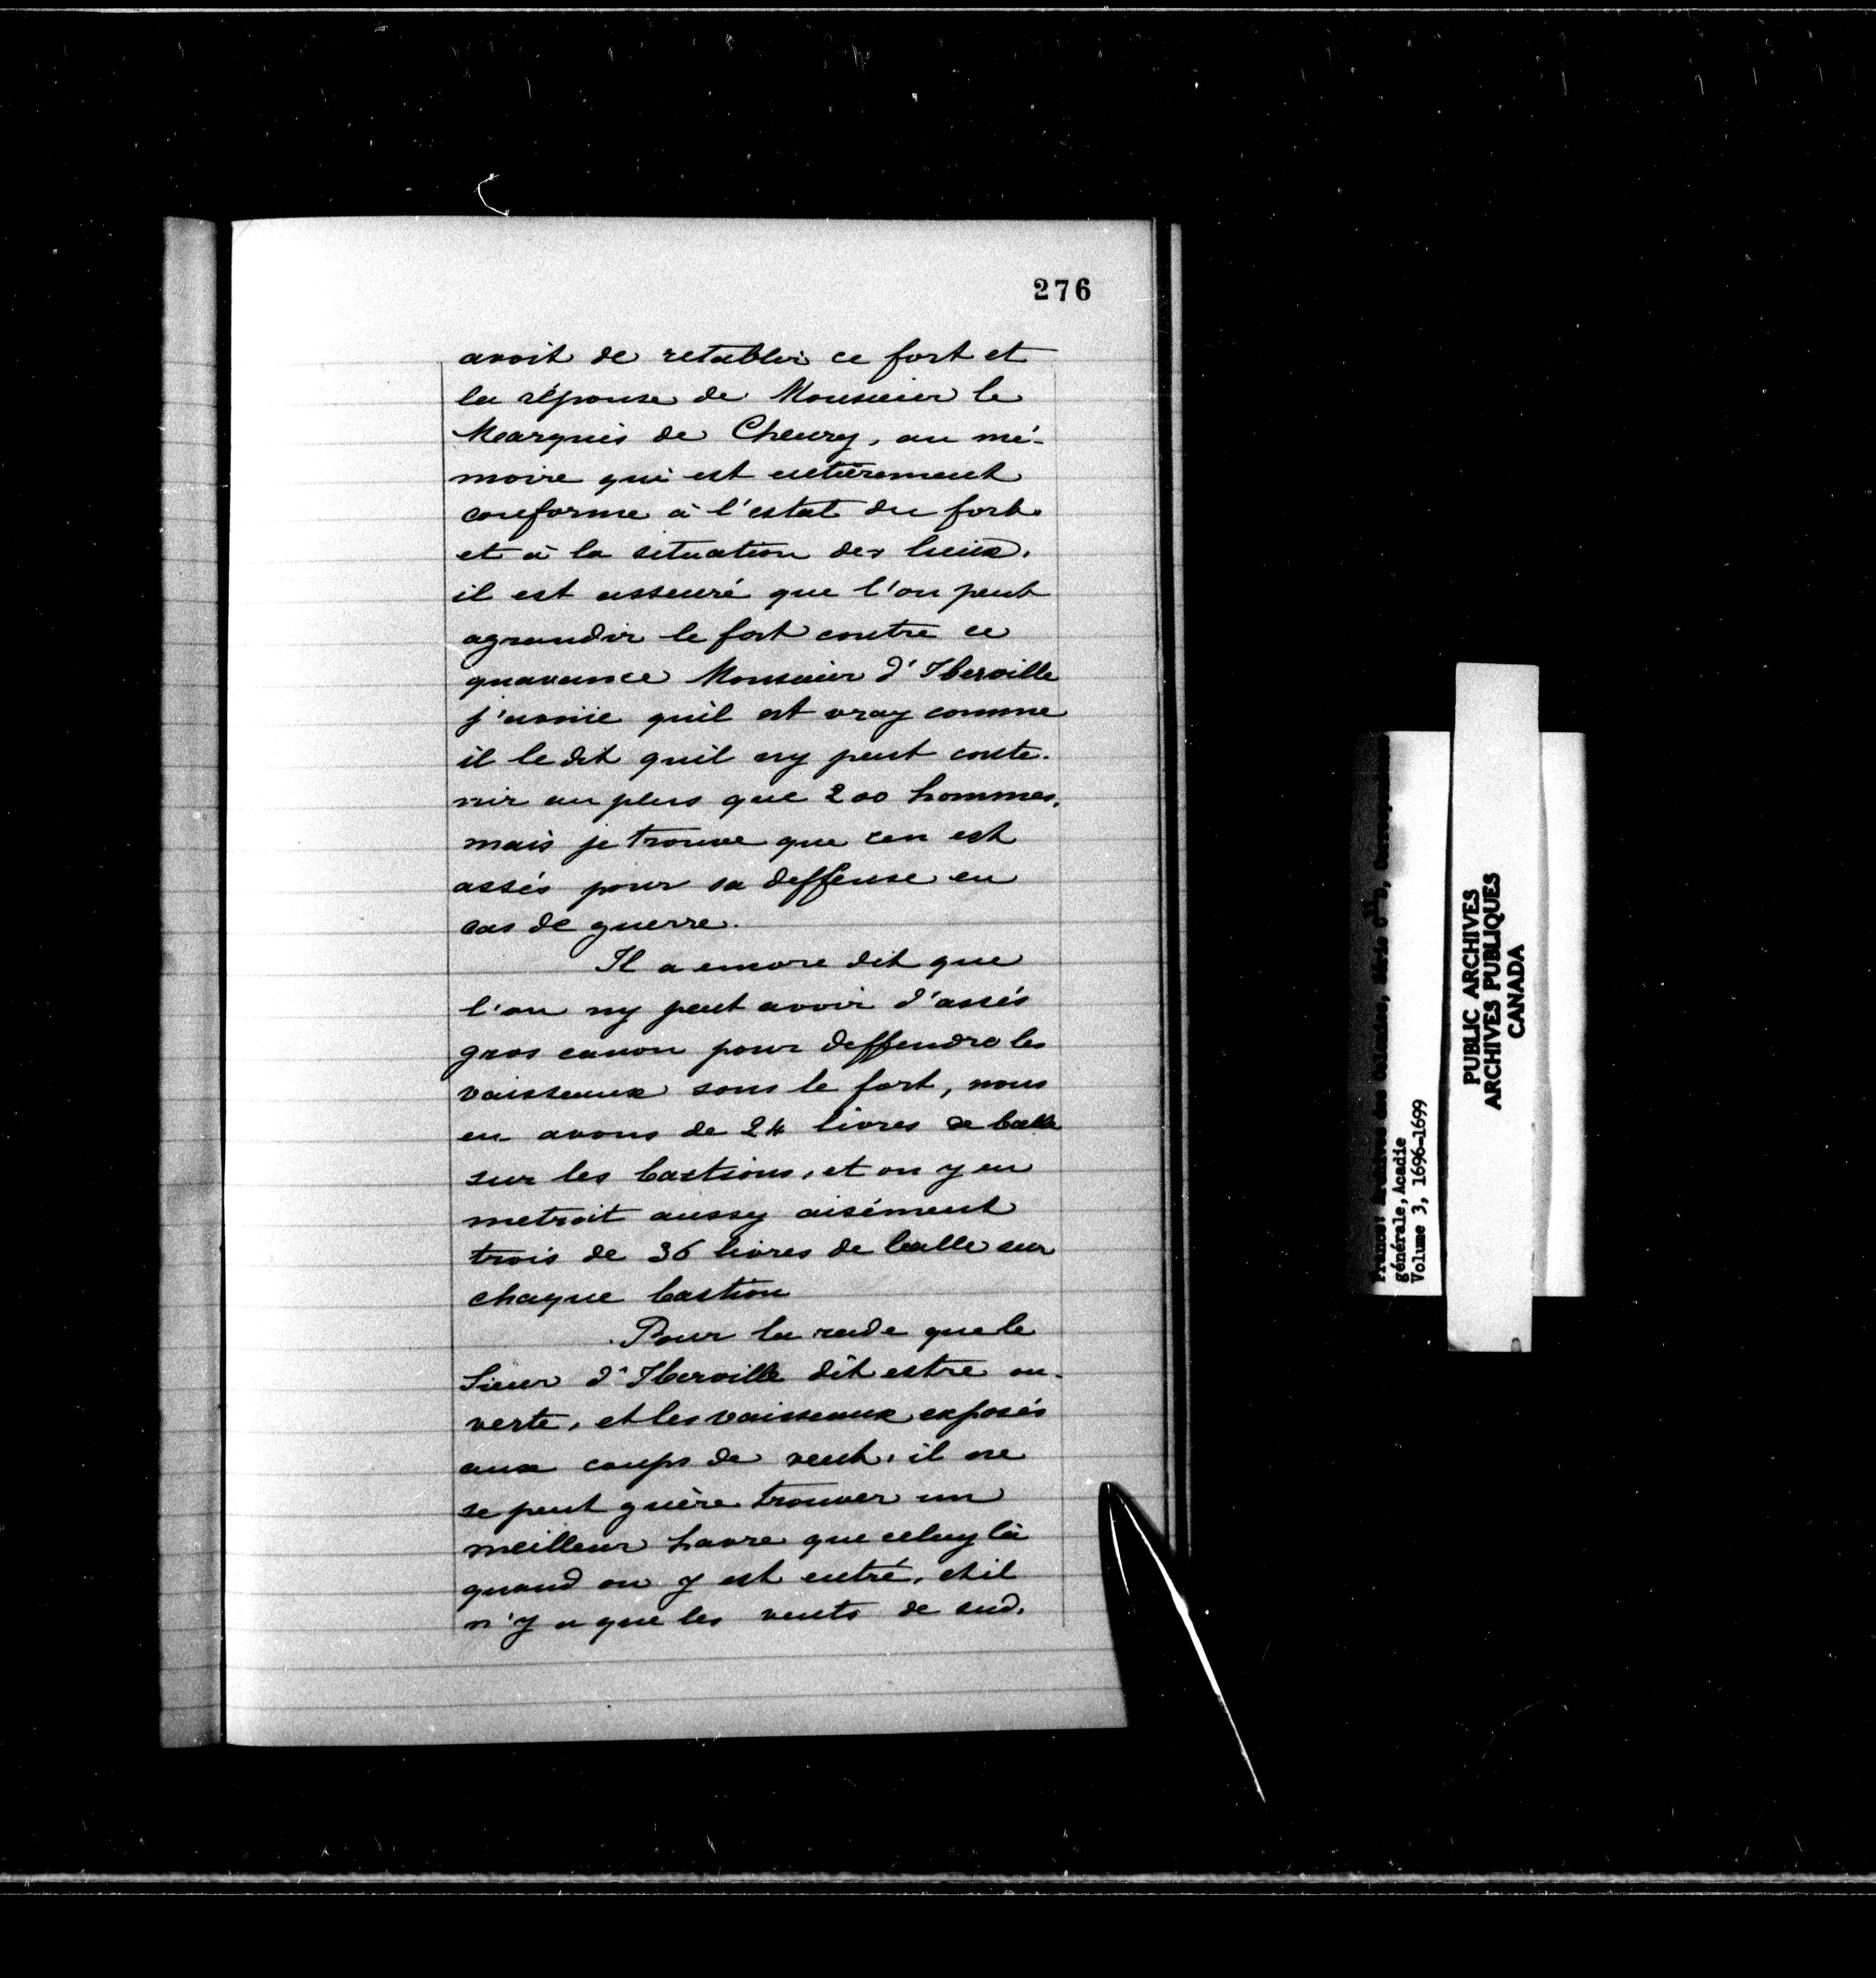 276
avoit de retablir ce fort et
la réponse de Monsieur le
Marquis de Cheury, au mé-
moire qui est entièrement
conforme à l'estat du fort
et à la situation des lieux.
il est asseuré que l'on peut
agrandir le fort contre ce
quavance Monsieur d'Iberville
j'avoüe quil est vray comme
il le dit quil ny peut conte-
nir au plus que 200 hommes,
mais je trouve que cen est
assés pour sa deffense en
cas de guerre.
Il a encore dit que
l'on ny peut avoir d'assés
gros canon pour deffendre les
vaisseaux sous le fort, nous
en avons de 24 livres de balle
sur les bastions, et on y en
metroit aussy aisément
trois de 36 livres de balle sur
chaque bastion
Pour la rade que le
Sieur d'Iberville dit estre ou-
verte, et les vaisseaux exposés
aux coups de vent, il ne
se peut guère trouver un
meilleur havre que celuy là
quand on y est entré, et il
n'y a que les vents de sud.
France: Archives des Colonies, Série C11D,
générale, Acadie
Volume 3, 1696-1699
PUBLIC ARCHIVES
ARCHIVES PUBLIQUES
CANADA